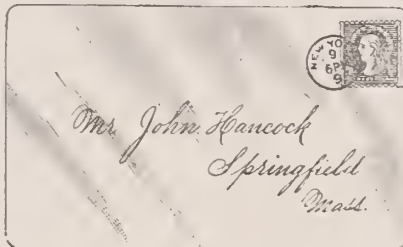 NEW YO
9
6P
9
Mr. John Hancock
Springfield
Mass.